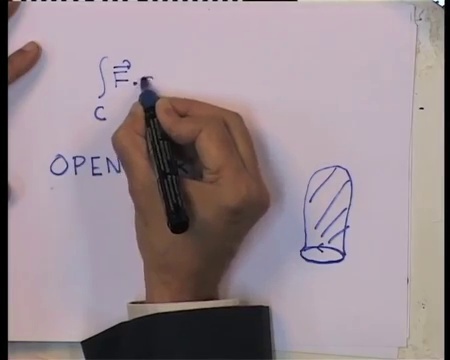 ∫_C F⃗ ·
OPEN